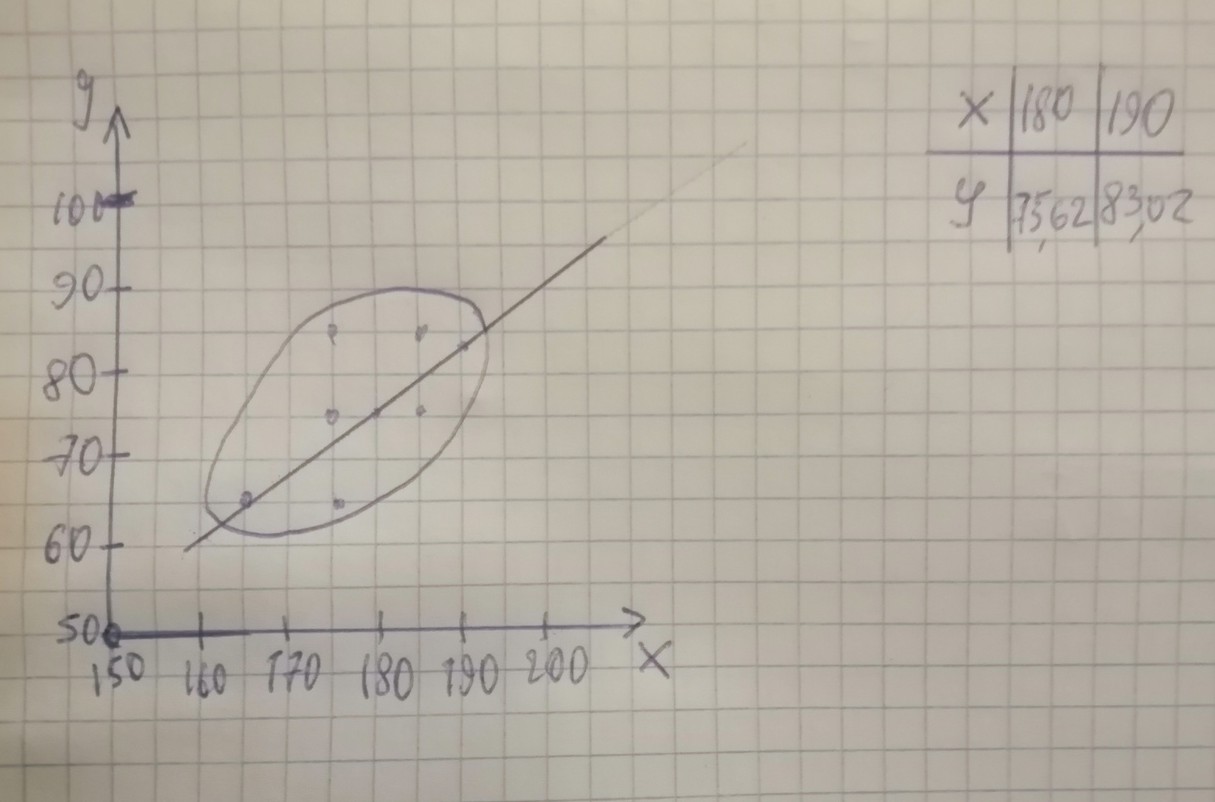 y
100
90
80
70
60
50
150 160 170 180 190 200 X
X 180 190
y 75,62 83,02